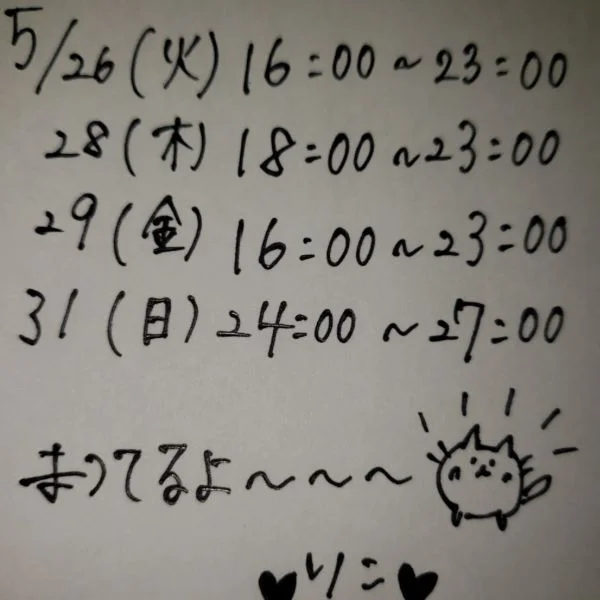 5/26(火)16:00~23:00
28(木)18:00~23:00
29(金)16:00~23:00
31(日)24:00~27:00
まってるよ〜〜〜
♥りこ♥